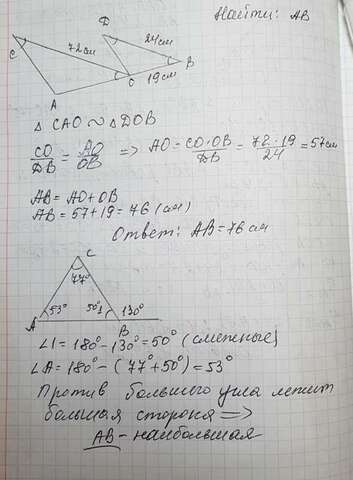 Найти: AB
D
C
72см
24см
B
O
19см
A
△ CAO ∾ △DOB
CO/DB = AO/OB => AO = CO·OB/DB = 72·19/24 = 57см
AB = AO + OB
AB = 57 + 19 = 76 (см)
Ответ: AB = 76 см
C
77°
A 53° 50° 1 130°
B
∠1 = 180° - 130° = 50° (смежные)
∠A = 180° - (77° + 50°) = 53°
Против большего угла лежит
большая сторона =>
AB - наибольшая